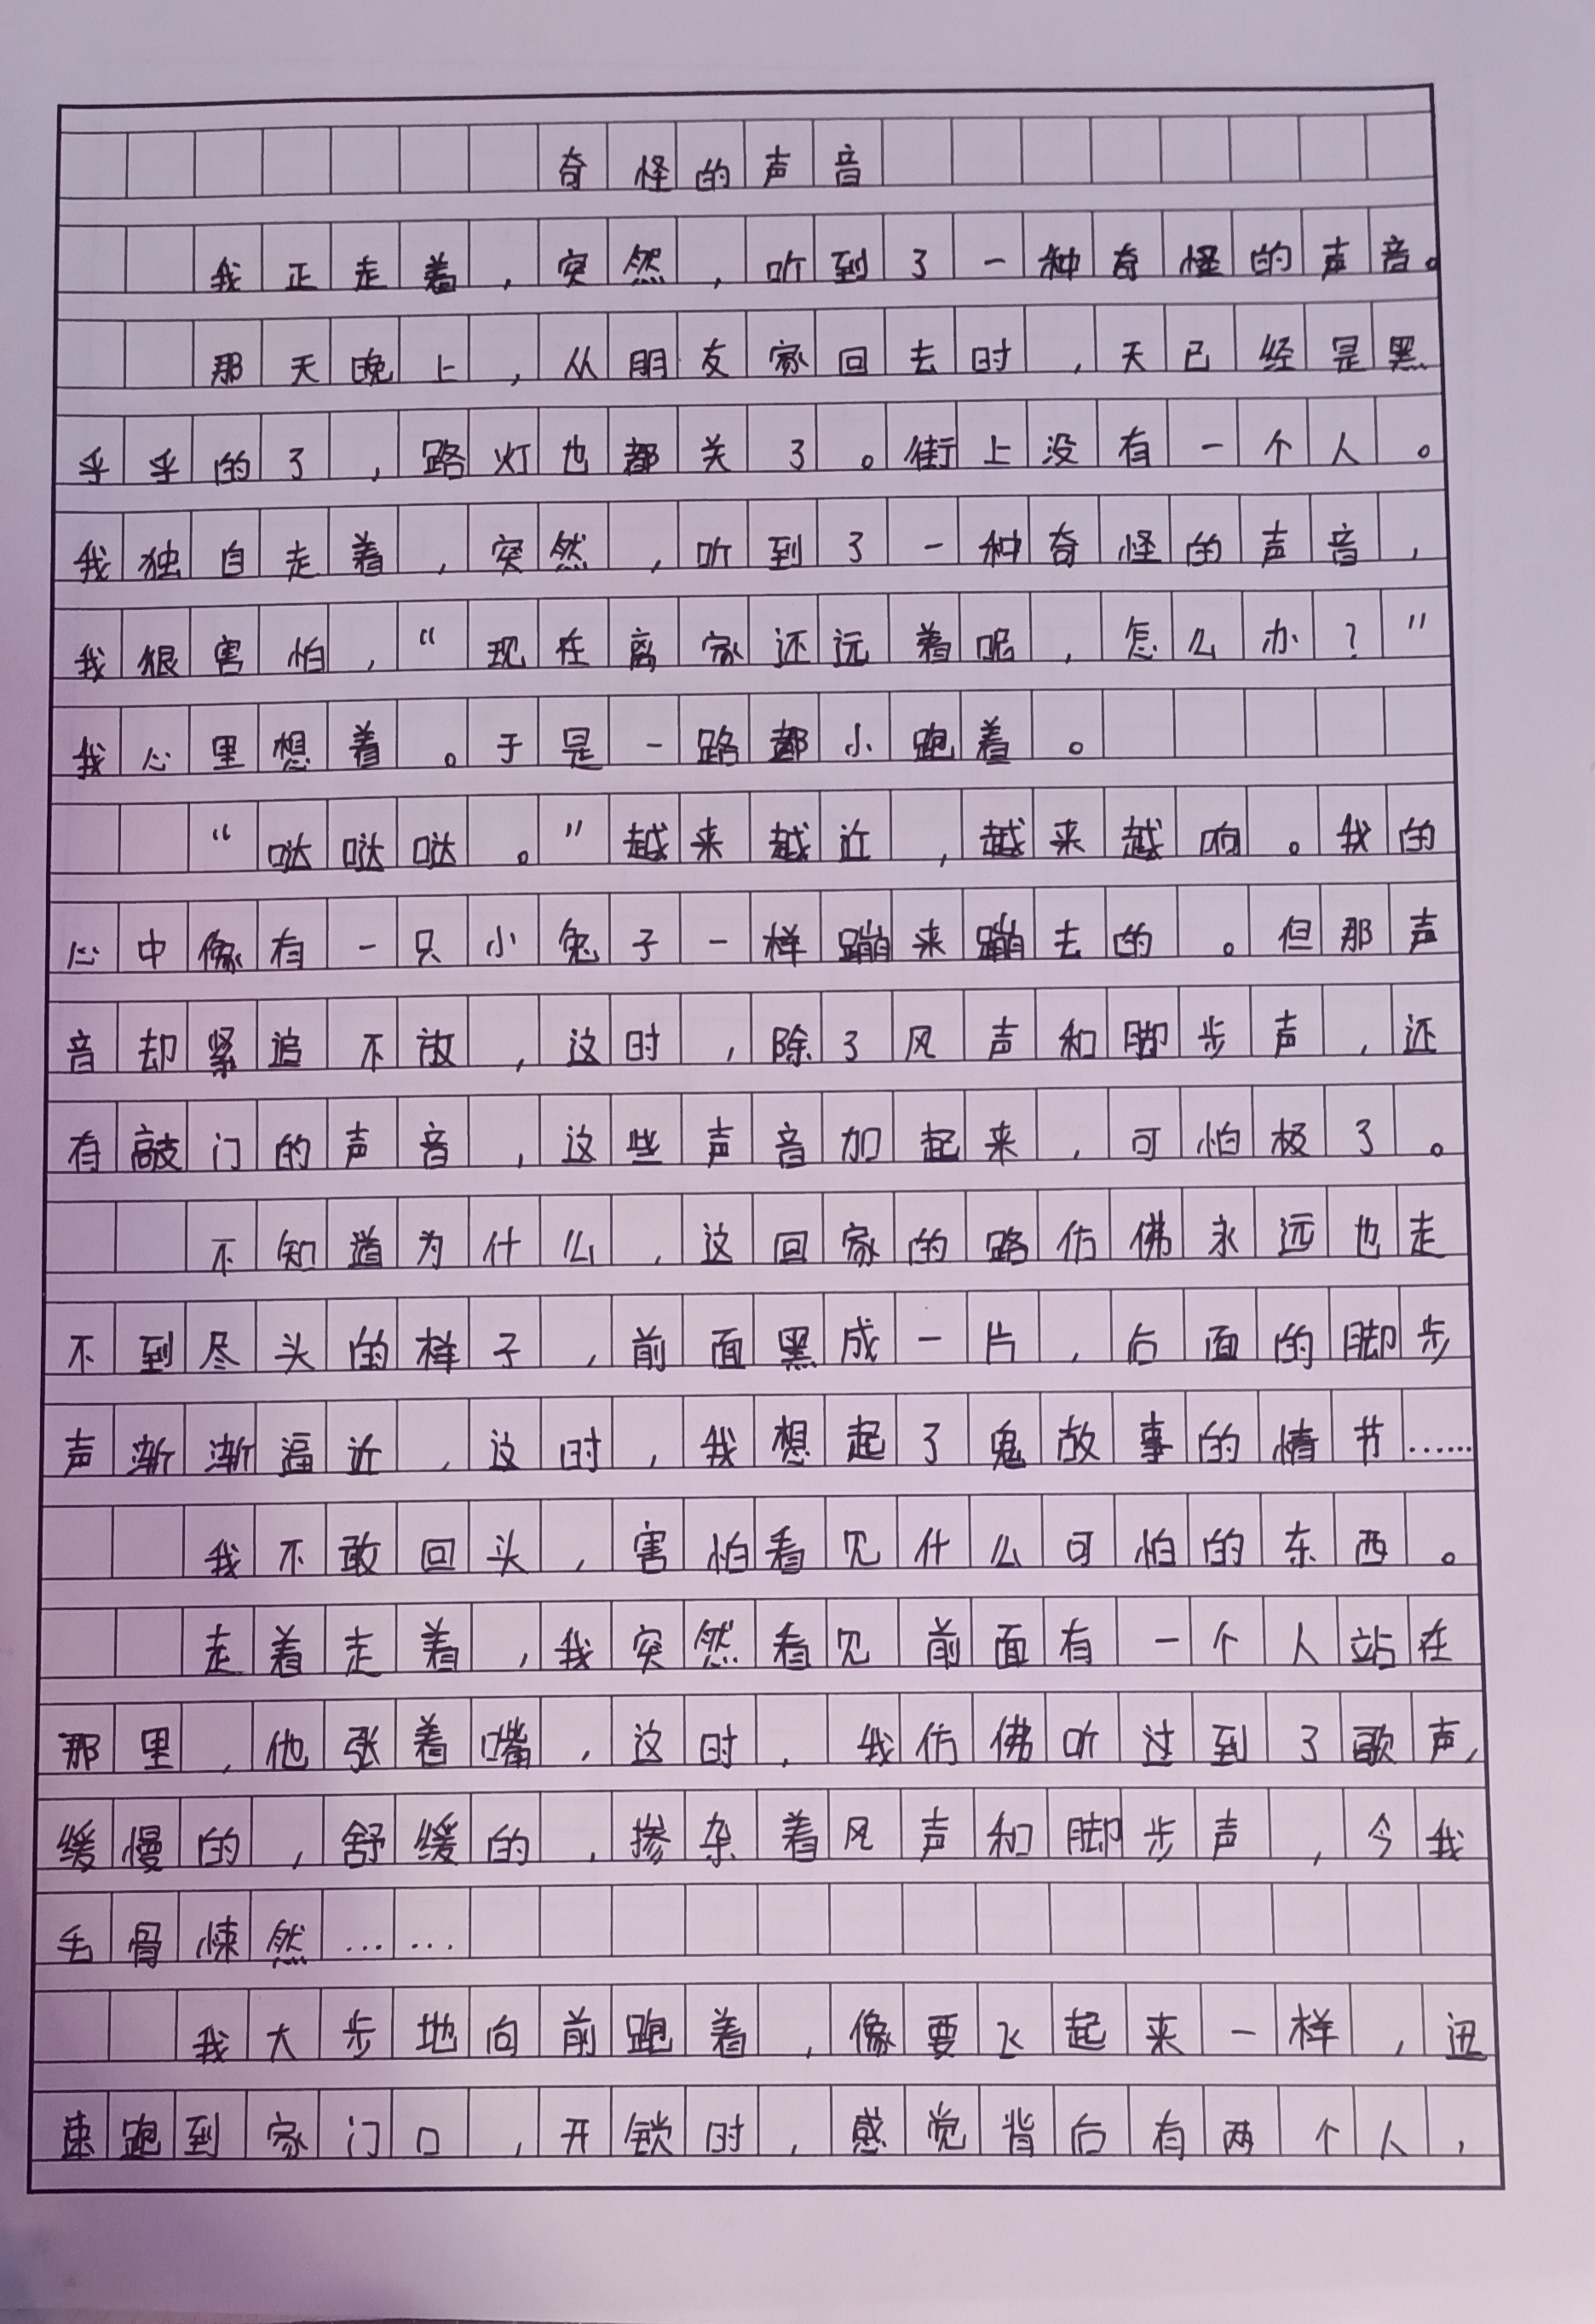 奇怪的声音
我正走着，突然，听到了一种奇怪的声音。
那天晚上，从朋友家回去时，天已经是黑
乎乎的了，路灯也都关了。街上没有一个人。
我独自走着，突然，听到了一种奇怪的声音，
我狠害怕，“现在离家还远着呢，怎么办？”
我心里想着。于是一路都小跑着。
“哒哒哒。”越来越近，越来越响。我的
心中像有一只小兔子一样蹦来蹦去的。但那声
音却紧追不放，这时，除了风声和脚步声，还
有敲门的声音，这些声音加起来，可怕极了。
不知道为什么，这回家的路仿佛永远也走
不到尽头的样子，前面黑成一片，后面的脚步
声渐渐逼近，这时，我想起了鬼故事的情节……
我不敢回头，害怕看见什么可怕的东西。
走着走着，我突然看见前面有一个人站在
那里，他张着嘴，这时，我仿佛听过到了歌声，
缓慢的，舒缓的，掺杂着风声和脚步声，令我
毛骨悚然……
我大步地向前跑着，像要飞起来一样，迅
速跑到家门口，开锁时，感觉背后有两个人，